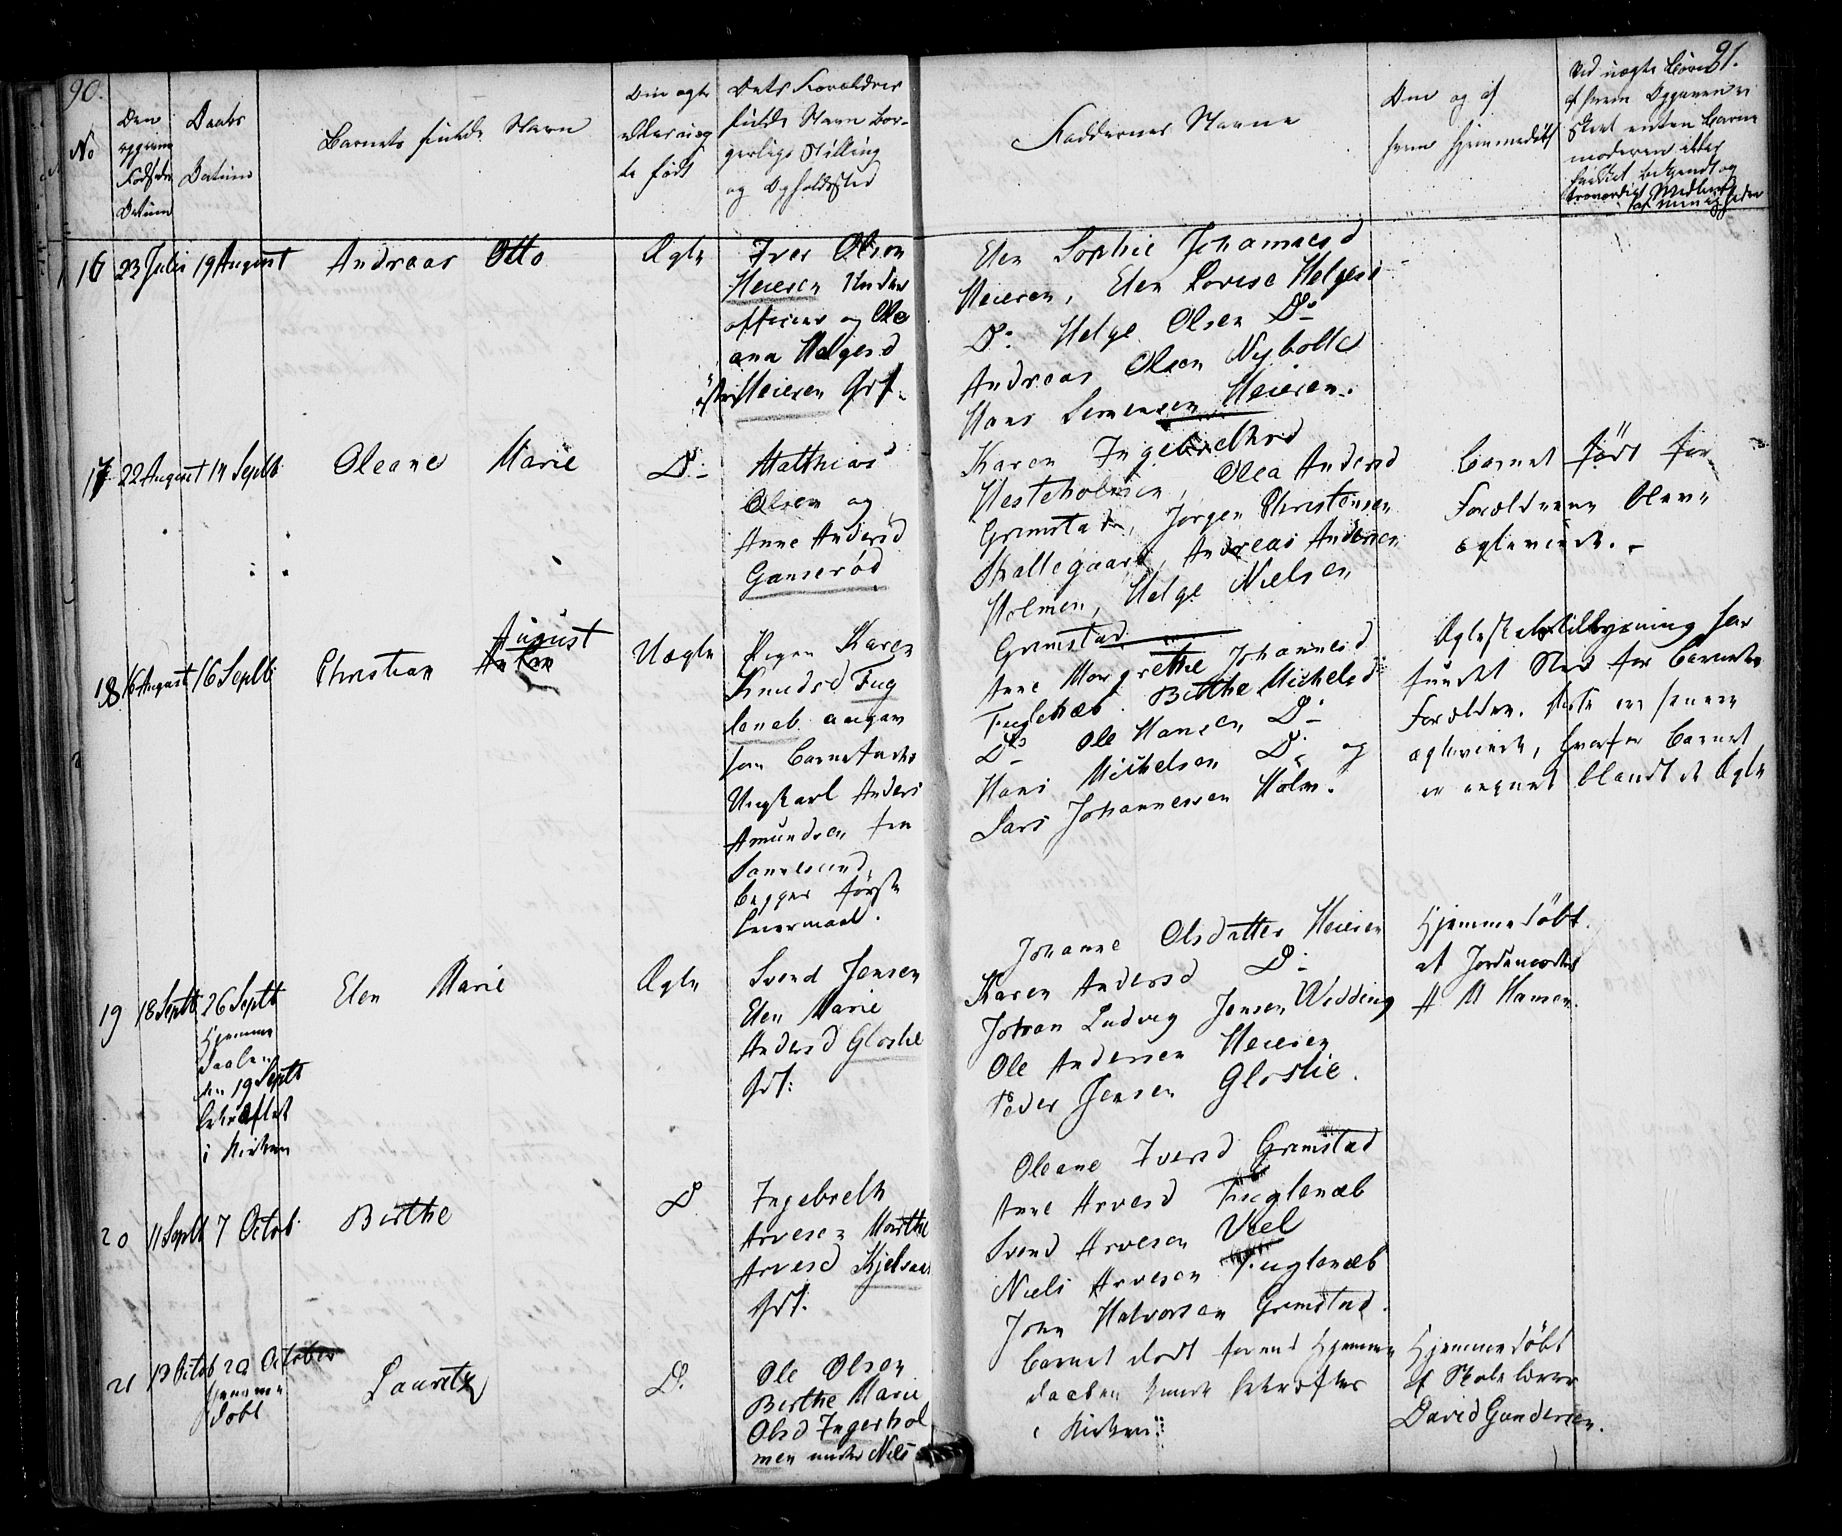 90.
91.
No
Den opgivne Fødsels Datum
Daabs Datum
Barnets fulde Navn
Om ægte eller uægte født
Dets Forældres fulde Navn Borgerlige Stilling og Opholdssted
Faddernes Navne
Om og af hvem hjemmedøbt
Ved uægte Børn
af hvem Opgaven er
skeet enten Barne
moderen eller
troværdigt Medlem
af menigheden
16
23 Julii
19 August
Andreas Otto
Ægte
Iver Olsen
Heiesen Under
officeer og Ole
ana Helgesd
Heiesen
Elen Sophie Johannesd
Heiesen, Elen Lovise Helgesd
Do Helge Olsen Do
Andreas Olsen Nybølle
Hans Heiesen.
17
22 August
14 Septb
Oleane Marie
Do
Matthias
Olsen og
Anne Andersd
Ganserød
Karen Ingebrethsd
Westeholmen, Olea Andersd
Grimstad, Jørgen Christensen
Skallegaard, Andreas Andersen
Holmen, Helge Nielsen
Grimstad
Barnet født før
Forældrene bleve
ægteviede.
18
16 August
16 Septb
Christian August
Uægte
Pigen Karen
Knudsd Fug
leneb angav
som Barnefader
Ungkarl Anders
Amundsen fra
Sannesund,
begges første
Leiermaal.
Anne Margrethe Johannesd
Fuglenæb. Birthe Michelsd
Do Ole Hansen Do
Hans Michelsen Do og
Lars Johannessen Holm.
har
fundet Sted for Barnets
Forældre. Disse ere senere
ægteviede, hvorfor Barnet
er regnet blandt de Ægte
19
18 Septb
26 Septb
hjemme
daaben
den 19 Septb
bekræftet
i Kirken
Elen Marie
Ægte
Svend Jensen
Elen Marie
Andersd Gloslie
Johanne Olsdatter Heiesen
Karen Andersd Do
Johan Ludvig Jensen Wedding
Ole Andersen Heiesen
Peder Jensen Gloslie.
Hjemmedøbt
af Jordemoder
M Hansen.
20
11 Septb
7 Octob.
Birthe
Do
Ingebreth
Arvesen Marthe
Arvesd Kjelsaas
Oleane Iversd Grimstad
Anne Arvesd Fuglenæb
Svend Arvesen Væl
Niels Arvesen Fuglenæb
John Halvorsen Grimstad.
21
19 Octob
20 October
hjemme
døbt
Lauritz
Do
Ole Olsen
Birthe Marie
Olsd Ingerhol
men under Næs
Barnet død forend hjemme
daaben kunde bekræftes
i Kirken
Hjemmedøbt
af Skolelærer
David Gundersen.